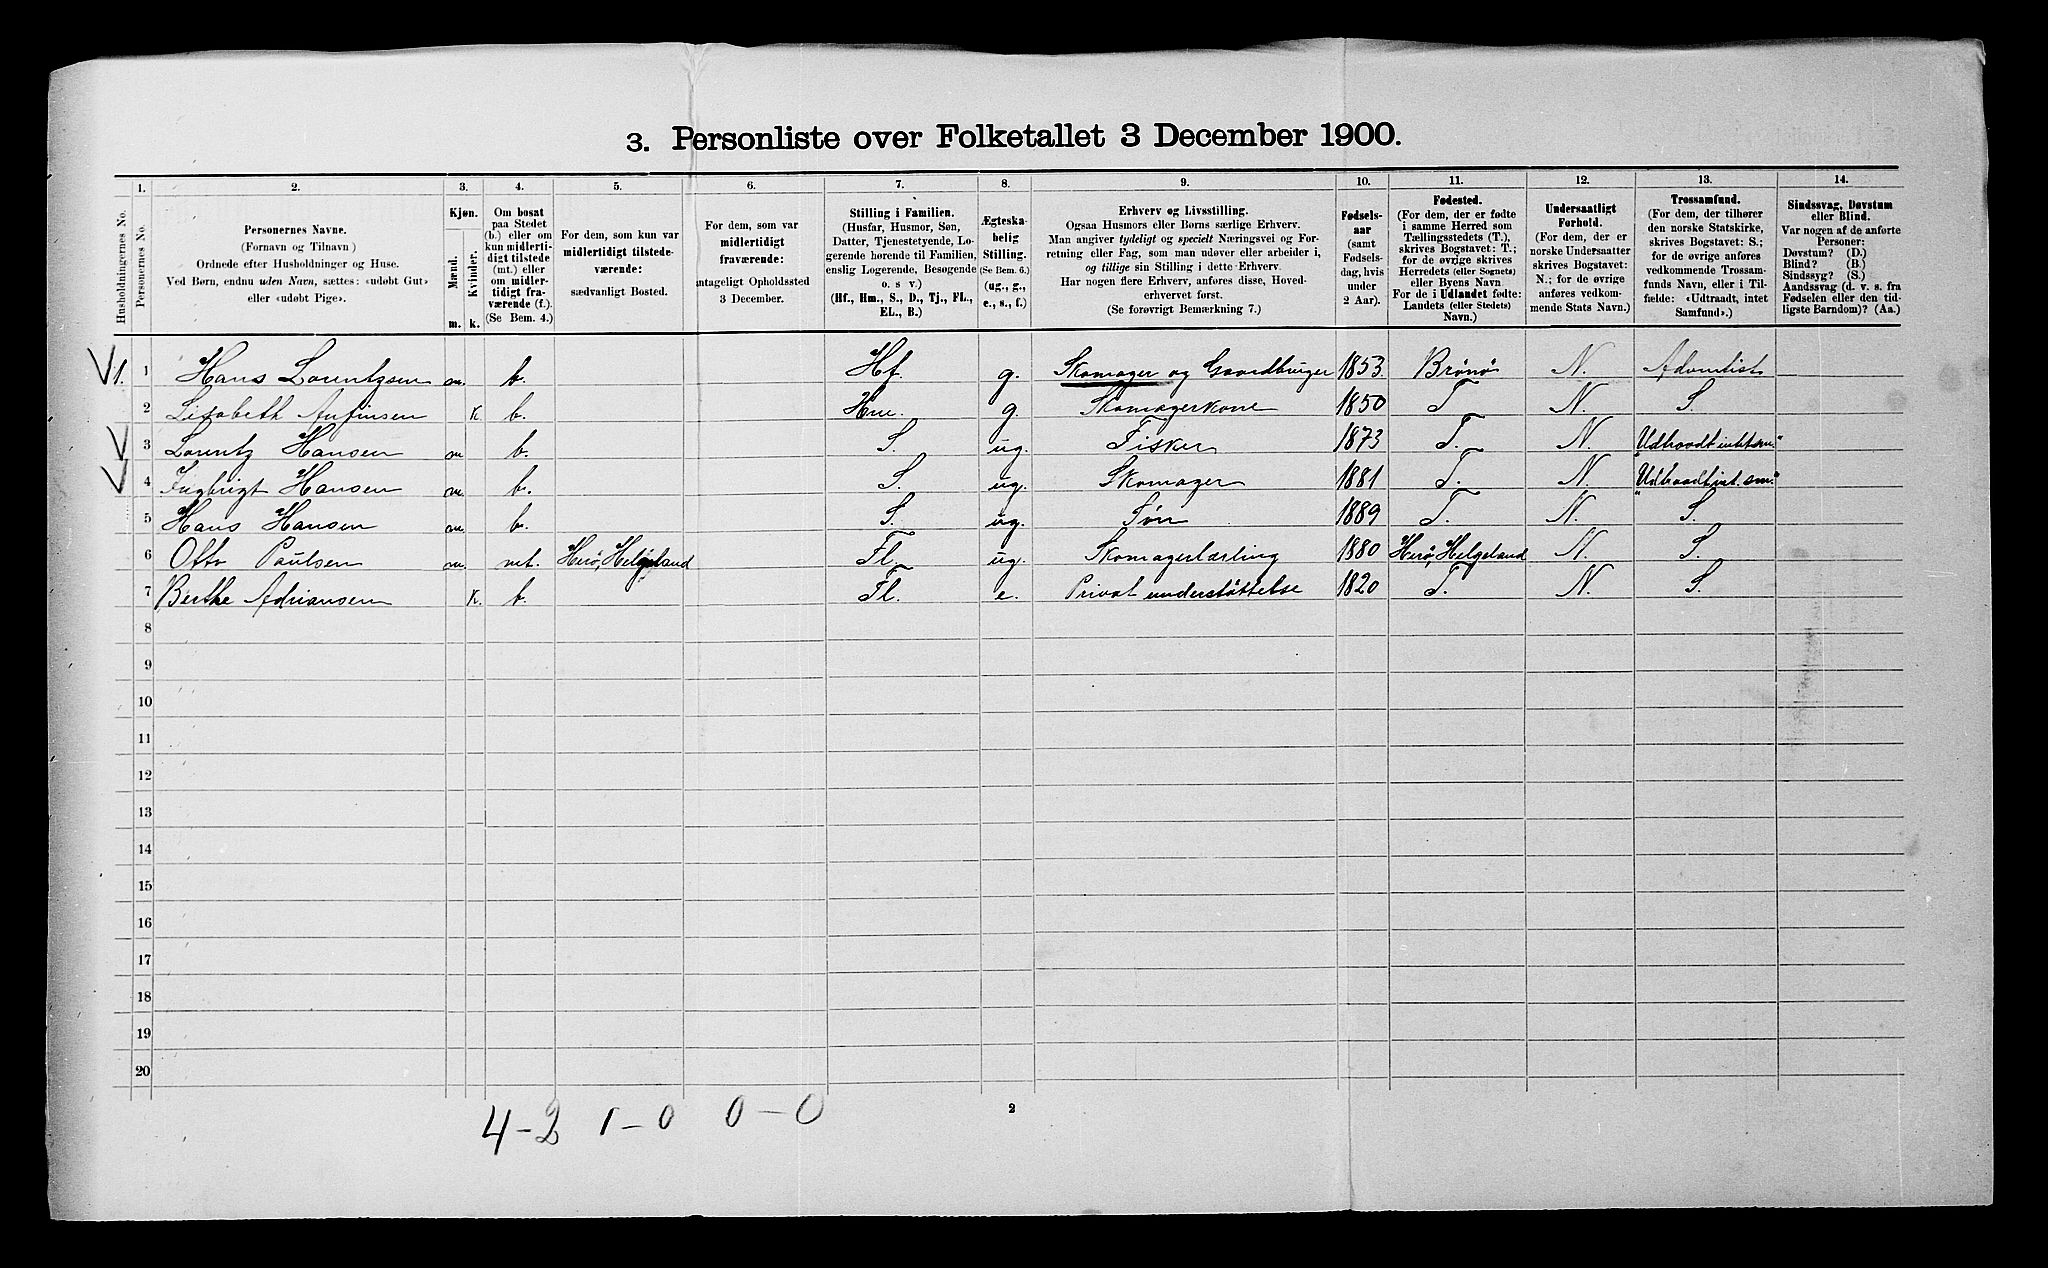 3. Personliste over Folketallet 3 December 1900.
1. 2. 3. 4. 5. 6. 7. 8. 9. 10. 11. 12. 13. 14.
Husholdningernes No.
Personernes No.
Personernes Navne.
(Fornavn og Tilnavn)
Ordnede efter Husholdninger og Huse.
Ved Børn, endnu uden Navn, sættes: «udøbt Gut»
eller «udøbt Pige».
Kjøn.
Mænd. Kvinder.
m. k.
Om bosat
paa Stedet
(b.) eller om
kun midlerti-
digt tilstede
(mt.) eller
om midler-
tidigt fra-
værende (f.).
(Se Bem. 4.)
For dem, som kun var
midlertidigt tilstede-
værende:
sædvanligt Bosted.
For dem, som var
midlertidigt
fraværende:
antageligt Opholdssted
3 December.
Stilling i Familien.
(Husfar, Husmor, Søn,
Datter, Tjenestetyende, Lo-
gerende hørende til Familien,
enslig Logerende, Besøgende
o. s. v.)
(Hf., Hm., S., D., Tj., FL.,
EL., B.)
Ægteska-
belig
Stilling.
(Se Bem. 6.)
(ug., g.,
e., s., f.)
Erhverv og Livsstilling.
Ogsaa Husmors eller Børns særlige Erhverv.
Man angiver tydeligt og specielt Næringsvei og For-
retning eller Fag, som man udøver eller arbeider i,
og tillige sin Stilling i dette Erhverv.
Har nogen flere Erhverv, anføres disse, Hoved-
erhvervet først.
(Se forøvrigt Bemærkning 7.)
Fødsels-
aar
(samt
Fødsels-
dag, hvis
under
2 Aar).
Fødested.
(For dem, der er fødte
i samme Herred som
Tællingsstedets (T.),
skrives Bogstavet: T.;
for de øvrige skrives
Herredets (eller Sognets)
eller Byens Navn
For de i Udlandet fødte:
Landets (eller Stedets)
Navn.)
Undersaatligt
Forhold.
(For dem, der er
norske Undersaatter
skrives Bogstavet:
N.; for de øvrige
anføres vedkom-
mende Stats Navn.)
Trossamfund.
(For dem, der tilhører
den norske Statskirke,
skrives Bogstavet: S.;
for de øvrige anføres
vedkommende Trossam-
funds Navn, eller i Til-
fælde: «Udtraadt, intet
Samfund».)
Sindssvag, Døvstum
eller Blind.
Var nogen af de anførte
Personer:
Døvstum? (D.)
Blind? (B.)
Sindssyg? (S.)
Aandssvag (d. v. s. fra
Fødselen eller den tid-
ligste Barndom)? (Aa.)
1. 1 Hans Lorentzsen m. b. Hf. g. Skomager og Gaardbruger 1853. Brønø N. Adventist
2 Lisabeth Anfinsen k. b. Hm. g. Skomagerkone 1850 T. N. S.
3 Lorentz Hansen m. b. S. ug. Fisker 1873 T. N. "Udtraadt intet sm."
4 Ingbrigt Hansen m. b. S. ug. Skomager 1881 T. N. "Udtraadt int. sm."
5 Hans Hansen m. b. S. ug. Søn 1889 T. N. S.
6 Otto Paulsen m. mt. Herø, Helgeland Fl. ug. Skomagerlærling 1880 Herø, Helgeland N. S.
7 Berthe Adriansen k. b. Fl. e. Privat understøttelse 1820 T. N. S.
8
9
10
11
12
13
14
15
16
17
18
19
20
4-2 1-0 0-0
2